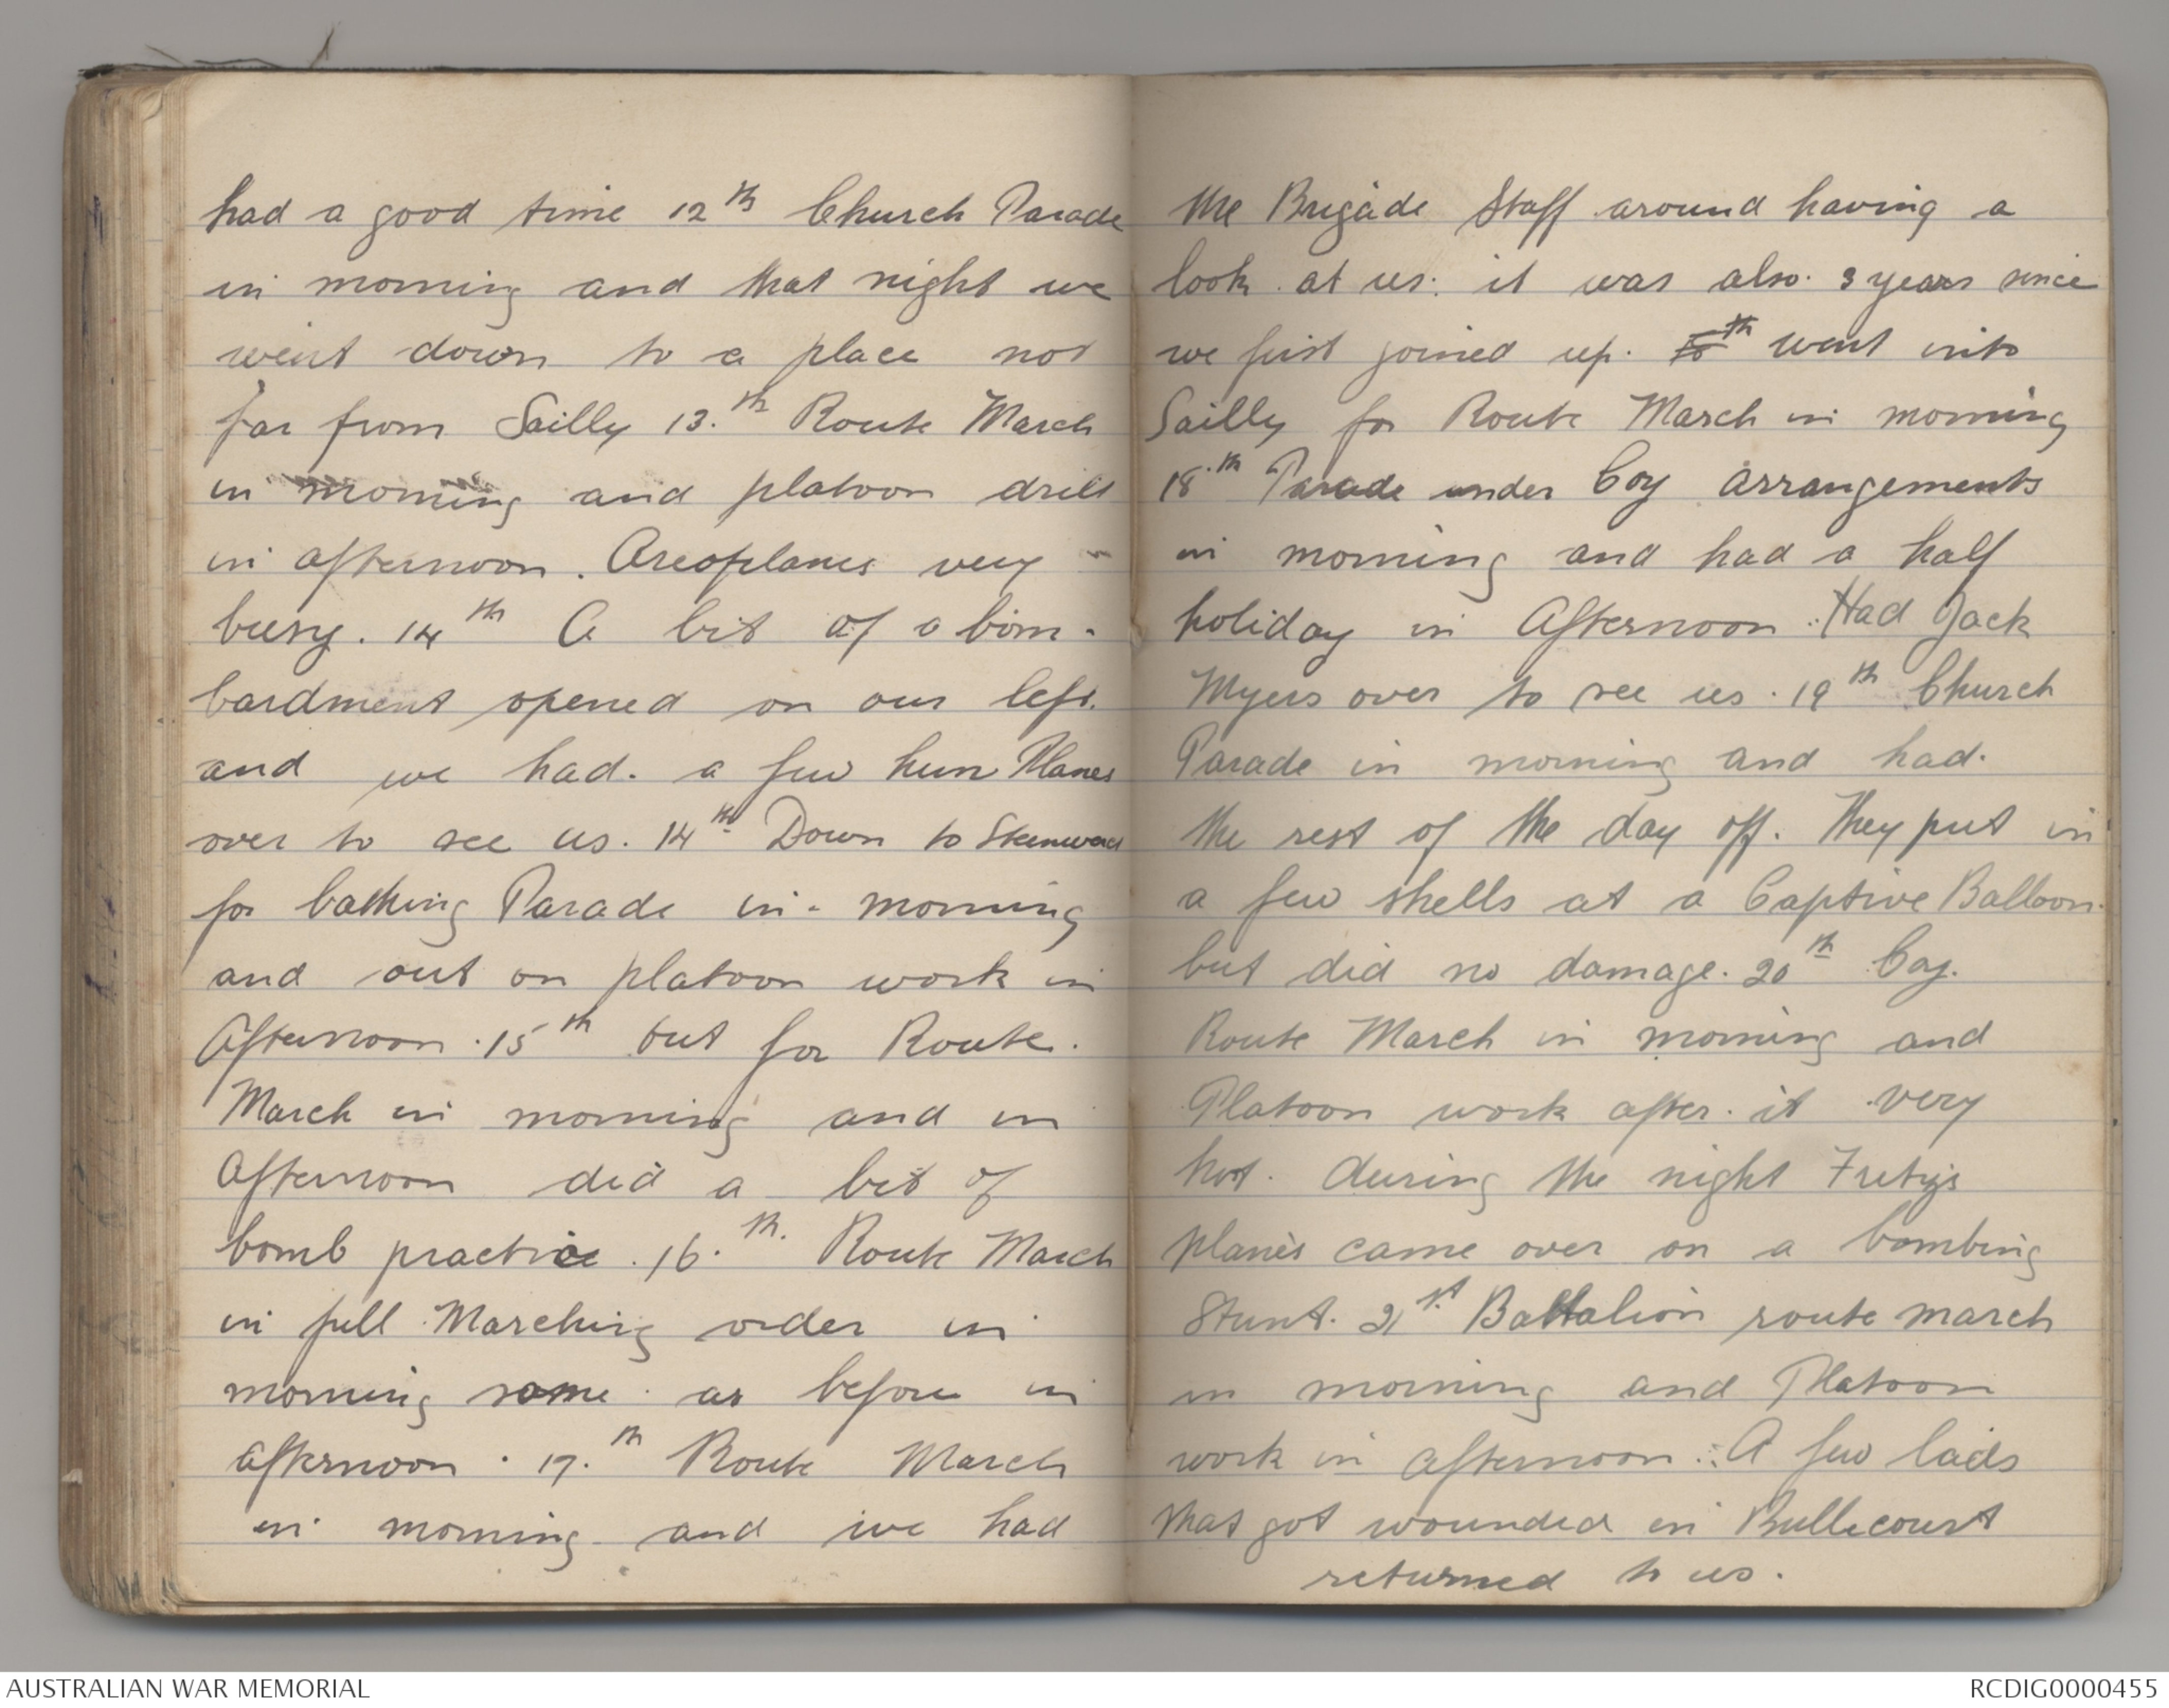 had a good time 12th Church Parade
in morning and that night we
went down to a place not
far from Sailly 13.th Route March
in morning and platoon drill
in afternoon. Areoplanes very
busy. 14th A bit of a bom-
bardment opened on our left.
and we had. a few hun Planes
over to see us. 14th. Down to Steenwerck
for bathing Parade in - morning
and out on platoon work in
Afternoon. 15th out for Route.
March in morning and in
Afternoon did a bit of
bomb practice. 16.th. Route March
in full Marching order in
morning same as before in
afternoon. 17.th Route March
in morning and we had
the Brigade Staff around having a
look at us. it was also. 3 years since
we first joined up. th went into
Sailly for Route March in morning
18.th Parade under Coy arrangements
in morning and had a half
holiday in Afternoon. Had Jack
Myers over to see us. 19th Church
Parade in morning and had.
the rest of the day off. They put in
a few shells at a Captive Balloon.
but did no damage. 20th Coy.
Route March in morning and
Platoon work after. it very
hot. During the night Fritzs
planes came over on a bombing
Stunt. 21st. Battalion route march
in morning and Platoon
work in afternoon. A few lads
that got wounded in Bullecourt
returned to us.
AUSTRALIAN WAR MEMORIAL
RCDIG0000455